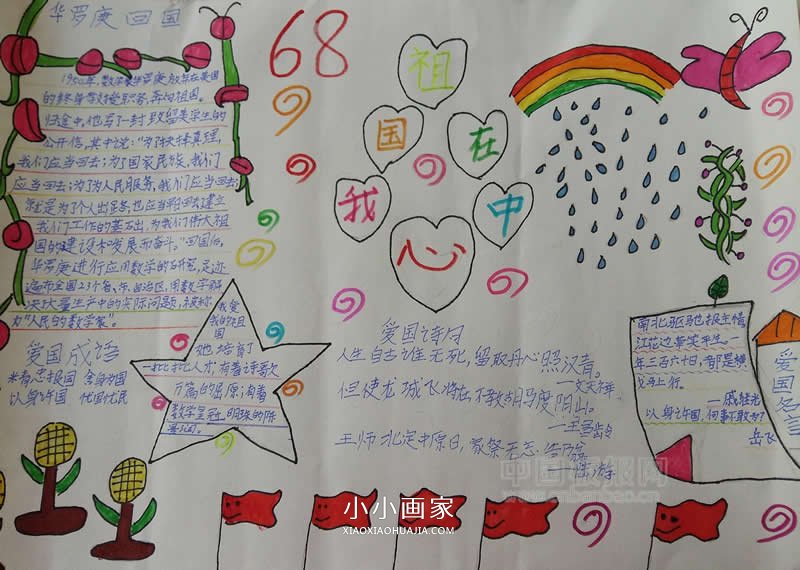 华罗庚回国
1950年,数学家华罗庚放弃在美国
的终身教授职务,奔向祖国。
归途中,他写了一封致留美学生的
公开信,其中说:"为了抉择真理,
我们应当回去;为了国家民族,我们
应当回去;为了为人民服务,我们应当回去;
就是为了个人出路,也应当早日回去,建立
我们工作的基础,为我们伟大祖
国的建设和发展而奋斗。"回国后,
华罗庚进行应用数学的研究,足迹
遍布全国23个省、市、自治区,用数学解
决大量生产中的实际问题,被称
为"人民的数学家"。
爱国成语
精忠报国
以身许国 忧国忧民
68
祖
国 在
我 中
心
我爱
我的祖
国
她培育了
一批批人才,有着诗歌
万篇的屈原;有着
数学皇冠 明珠的陈
景润。
爱国诗句
人生自古谁无死,留取丹心照汗青。
—文天祥
但使龙城飞将在,不教胡马度阴山。
—王昌龄
王师北定中原日,家祭无忘告乃翁。
—陆游
南北驱驰报主情
江花边草笑平生。一
年三百六十日,都是横
戈马上行。
—戚继光
以身许国,何事不敢为?
—岳飞
爱国名言
中国板报网
www.cnbanbao.cn
小小画家
XIAOXIAOHUAJIA.COM